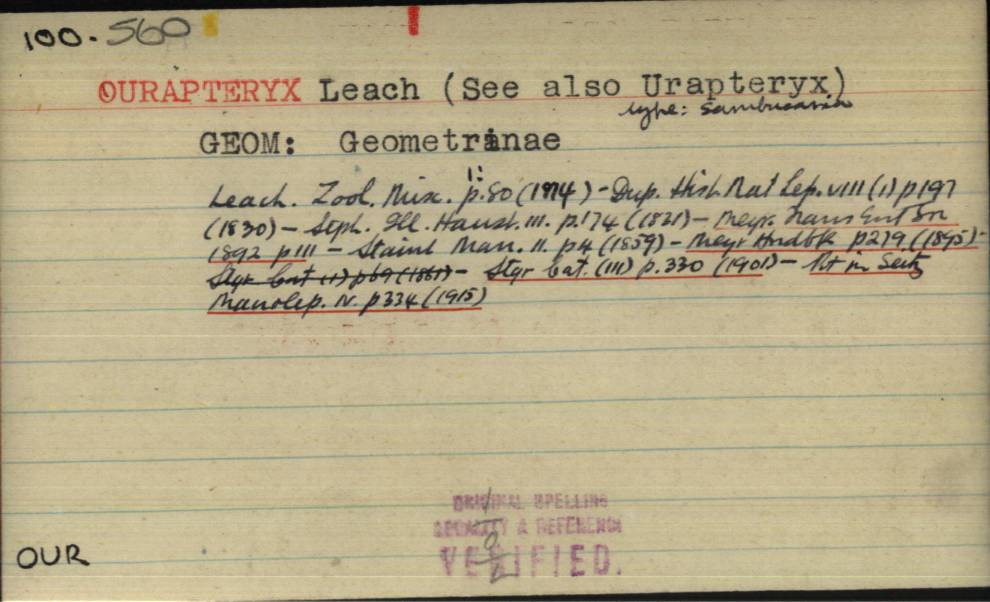 100.560
OURAPTERYX Leach (See also Urapteryx)
type: Sambucaria
GEOM: Geometrinae
Leach. Zool. Misc. 1: p.80 (1814) - Dup. Hist. Nat Lep. VIII (1) p197
(1830) - Steph. Ill. Haust. III. p.174 (1831) - Meyr. Trans Ent Soc
1892 p111 - Staint Man. II. p4 (1859) - Meyr Hndbk p279 (1895) -
Stgr Cat (1) p69 (1861) - Stgr Cat. (III) p.330 (1901) - Prt in Seitz
Macrolep. IV. p334 (1915)
ORIGINAL SPELLING
& REFERENCE
VERIFIED.
OUR